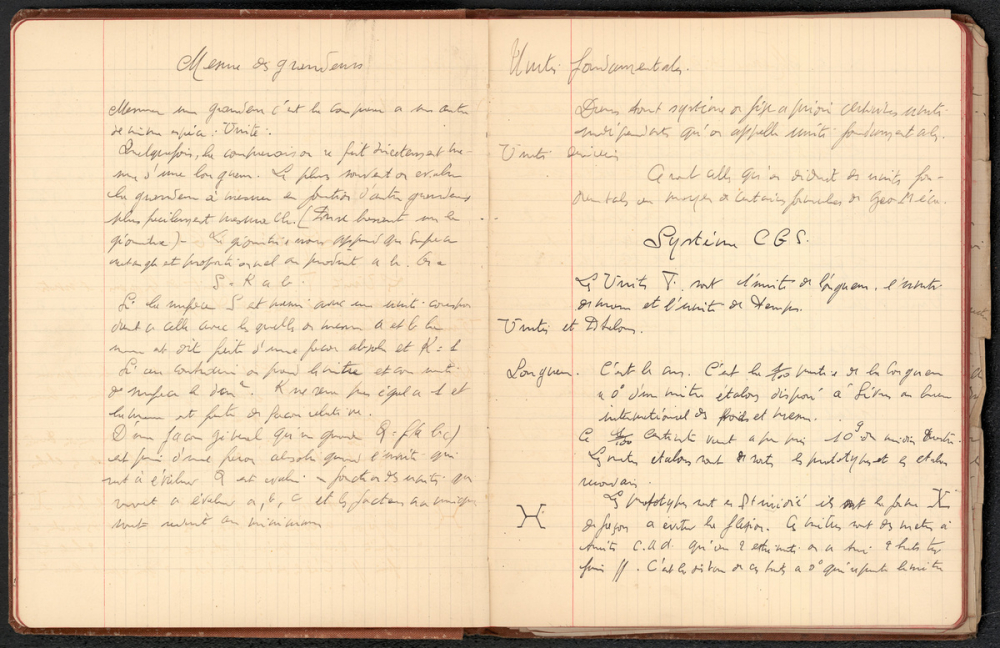 Mesure des grandeurs
Mesurer une grandeur c'est la comparer a une autre
de même espèce : Unité.
Quelquefois, la comparaison se fait directement
d'une longueur. Le plus souvent on évalue
la grandeur à mesurer en fonction d'autres grandeurs
plus facilement mesurables. (
géométrie) - La géométrie nous apprend que surface
rectangle est proportionnel au produit a b.
S = K a b.
Si la surface S est mesurée avec une unité
a celle avec laquelle on mesure a et b la
mesure est dite faite d'une façon absolue et K = 1
Si au contraire on prend le mètre et comme unité
de surface le dm². K ne sera pas égal a 1 et
la mesure est faite de façon relative.
D'une façon générale qu'une grandeur Q = f(a b c)
est d'une façon absolue quand l'unité qui
sert à évaluer Q est fonction des unités qui
servent a évaluer a, b, c et les facteurs numériques
sont au minimum
Unités fondamentales.
Dans tout système on fixe a priori certaines unités
indépendantes qu'on appelle unités fondamentales.
Unités dérivées
Ce sont celles qu'on déduit des unités fon-
damentales au moyen de certaines formules de Géométrie.
Système C.G.S.
Les Unités F. sont l'unité de longueur, l'unité
de masse et l'unité de Temps.
Unités et Etalons.
Longueur. C'est le cm. C'est la 1/100 partie de la longueur
a 0° d'un mètre étalon déposé à Sèvres au bureau
international des poids et mesures.
Ce 1/100 10⁹
Les mètres étalons sont de sortes les prototypes et les étalons
secondaires.
Les prototypes sont en Pt iridié ils ont la forme X
de façon a éviter la flexion. Ces mètres sont des mètres à
traits c.a.d. qu'aux 2 extrémités on a 2 traits très
fins //. C'est la distance de ces traits a 0° qui représente le mètre